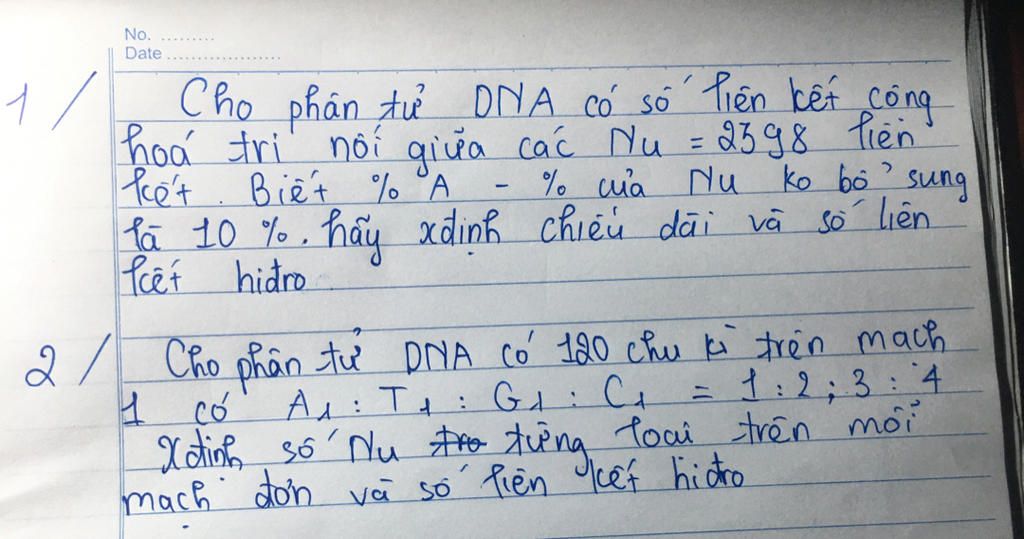 No. .........
Date ...................
1/ Cho phân tử DNA có số liên kết cộng
hoá trị nối giữa các Nu = 2398 liên
kết. Biết % A - % của Nu ko bổ sung
là 10 %. hãy xđịnh chiều dài và số liên
kết hiđro
2/ Cho phân tử DNA có 120 chu kì trên mạch
1 có A1 : T1 : G1 : C1 = 1 : 2 ; 3 : 4
xđịnh số Nu tro từng loại trên mỗi
mạch đơn và số liên kết hiđro